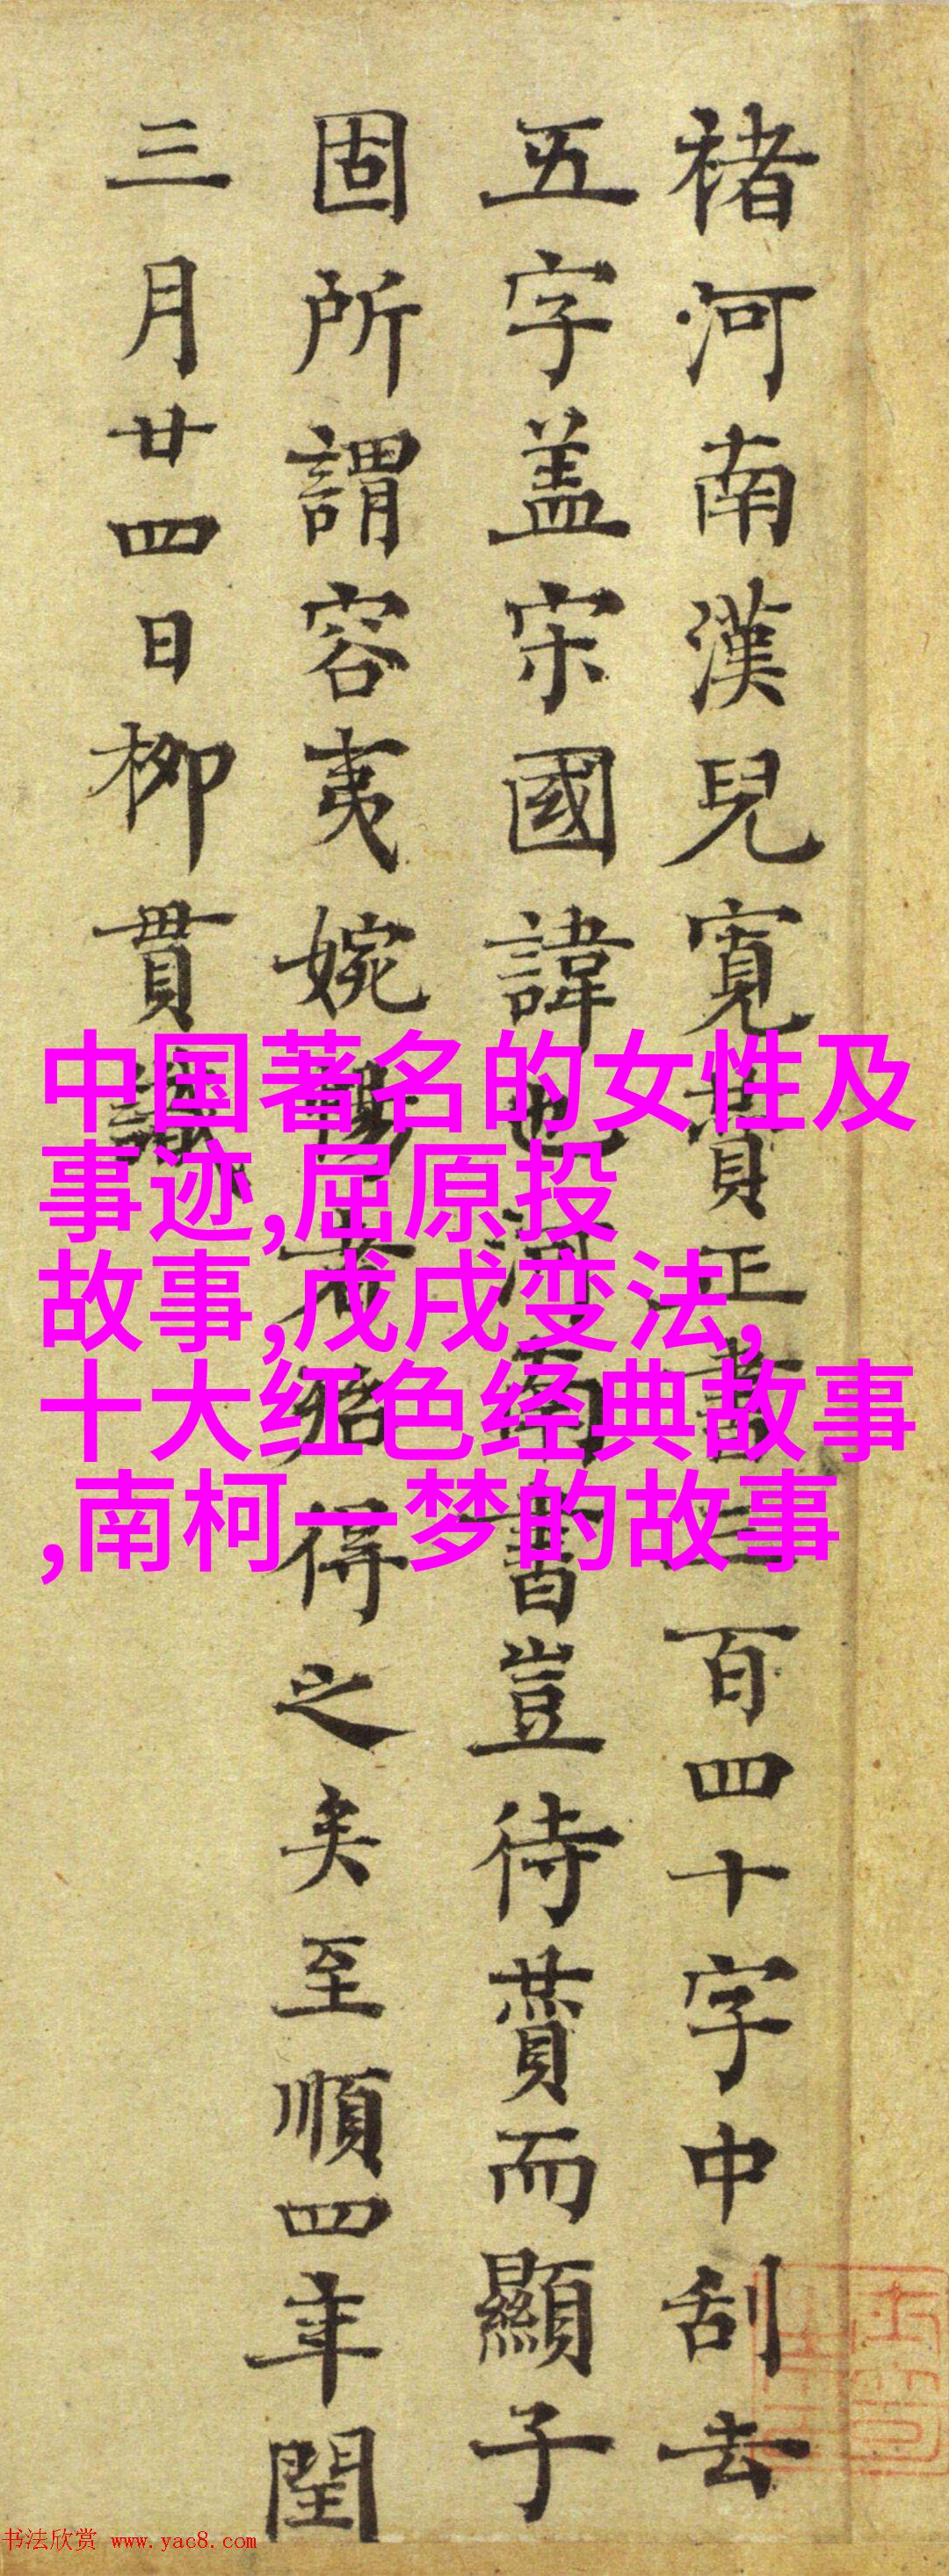 褚河南漢兒寬賛正書三百四十字中刮去
五字盖宋國諱也河南書豈待賛而顯子
固所謂容夷婉暢者殆得之矣至順四年閏
三月廿四日柳貫識
中国著名的女性及
事迹,屈原投
故事,戊戌变法,
十大红色经典故事
,南柯一梦的故事
书法欣赏 www.yac8.com